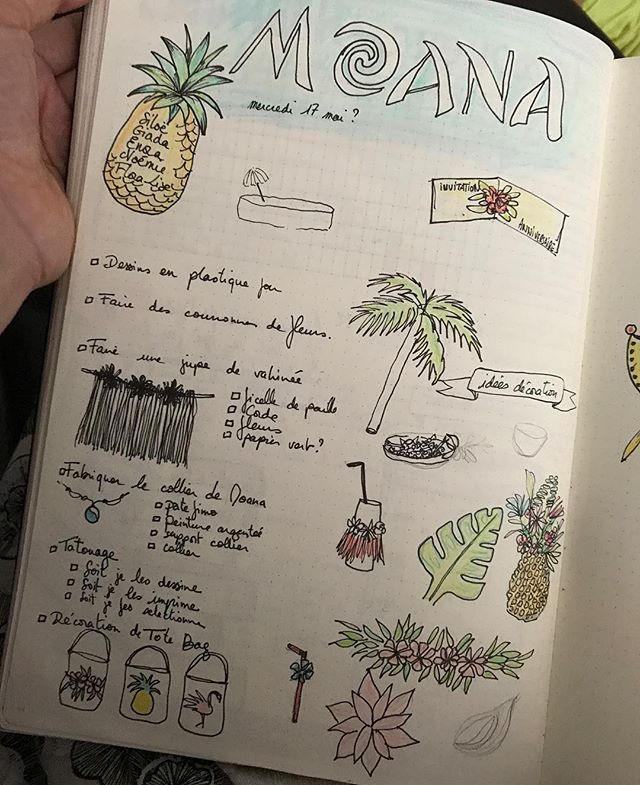 MOANA
mercredi 17 mai ?
Siloë
Giada
Enoa
Noémie
INVITATION
ANNIVERSAIRE!
□ Dessins en plastique fou
□ Faire des couronnes de fleurs.
□ Faire une jupe de vahinée
□ ficelle de paille
□ Corde
□ fleurs
□ papier vert ?
idées décoration
□ Fabriquer le collier de Moana
□ pate fimo
□ Peinture argentée
□ support collier
□ collier
□ Tatouage
□ Soit je les dessine
□ Soit je les imprime
□ Soit je les sélectionne
□ Décoration de Tote Bag